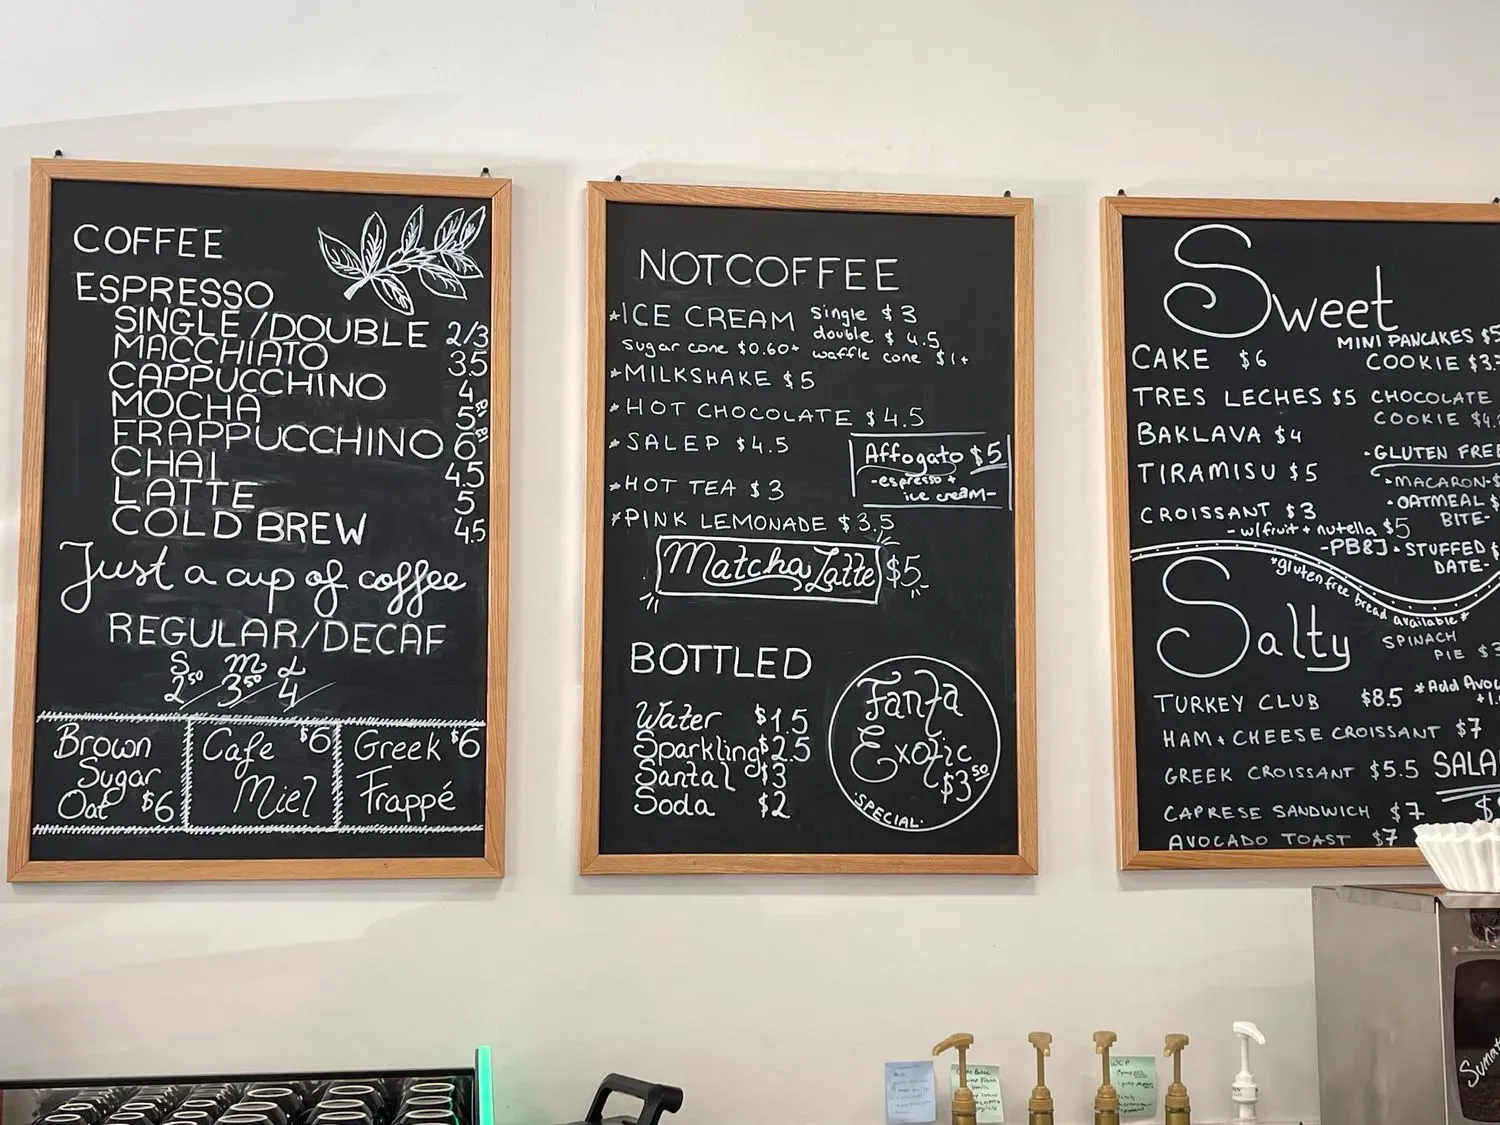 COFFEE
ESPRESSO
SINGLE/DOUBLE 2/3
MACCHIATO 3.5
CAPPUCCHINO 4
MOCHA 5
FRAPPUCCHINO 6
CHAI 4.5
LATTE 5
COLD BREW 4.5
Just a cup of coffee
REGULAR/DECAF
S M L
2.50/3.50/4
Brown
Sugar
Oat $6
Cafe $6
Miel
Greek $6
Frappé
NOTCOFFEE
*ICE CREAM single $3
double $4.5
sugar cone $0.60+ waffle cone $1+
*MILKSHAKE $5
*HOT CHOCOLATE $4.5
*SALEP $4.5
Affogato $5
-espresso+
ice cream-
*HOT TEA $3
*PINK LEMONADE $3.5
Matcha Latte $5
BOTTLED
Water $1.5
Sparkling $2.5
Santal $3
Soda $2
Fanta
Exotic
$3.50
·SPECIAL·
Sweet
MINI PANCAKES
CAKE $6
COOKIE
TRES LECHES $5
CHOCOLATE
COOKIE
BAKLAVA $4
·GLUTEN FREE
TIRAMISU $5
·MACARON-
·OATMEAL
BITE-
CROISSANT $3
-w/fruit+nutella $5
-PB&J
·STUFFED
DATE-
*gluten free bread available*
Salty
SPINACH
PIE
TURKEY CLUB $8.5
*Add
HAM+CHEESE CROISSANT $7
GREEK CROISSANT $5.5
CAPRESE SANDWICH $7
AVOCADO TOAST $7